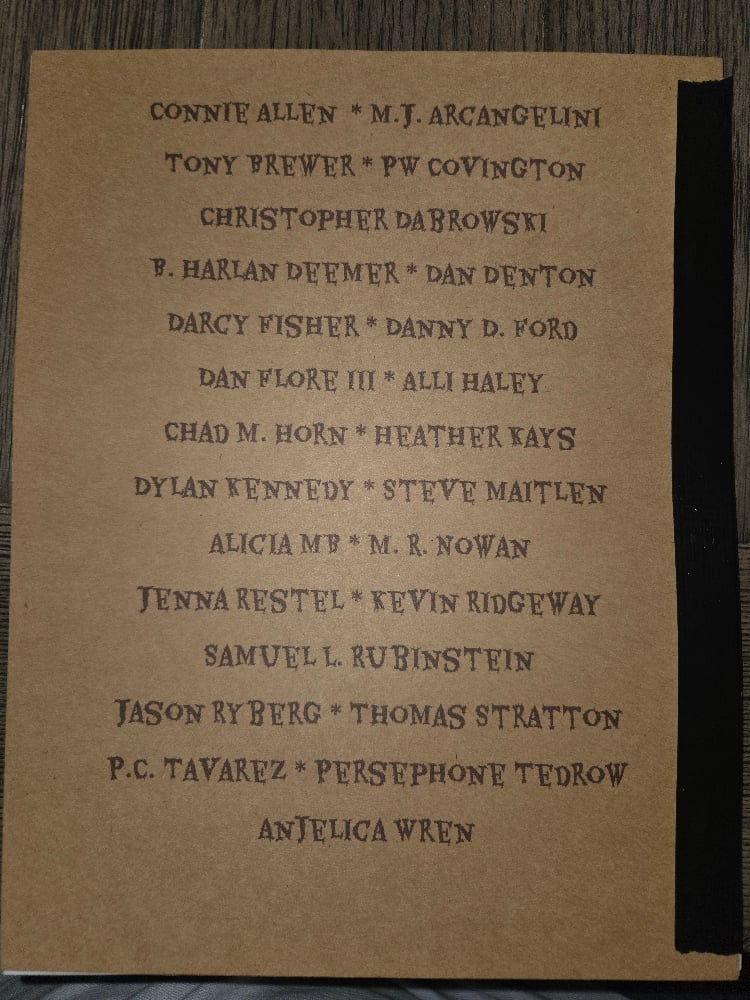 CONNIE ALLEN * M.J. ARCANGELINI
TONY BREWER * PW COVINGTON
CHRISTOPHER DABROWSKI
B. HARLAN DEEMER * DAN DENTON
DARCY FISHER * DANNY D. FORD
DAN FLORE III * ALLI HALEY
CHAD M. HORN * HEATHER KAYS
DYLAN KENNEDY * STEVE MAITLEN
ALICIA MB * M. R. NOWAN
JENNA RESTEL * KEVIN RIDGEWAY
SAMUEL L. RUBINSTEIN
JASON RYBERG * THOMAS STRATTON
P.C. TAVAREZ * PERSEPHONE TEDROW
ANJELICA WREN